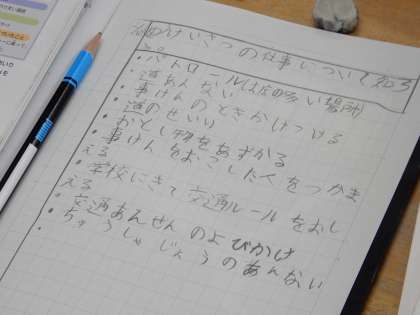 めけいさつの仕事について知ろう
・パトロールは店の多い場所
・道あんない
・事けんのときかけつける
・道のせいり
・おとし物をあずかる
・事けんをおこした人をつかま
える
・学校にきて交通ルールをおし
える
・交通あんぜんのよびかけ
・ちゅうしゃじょうのあんない